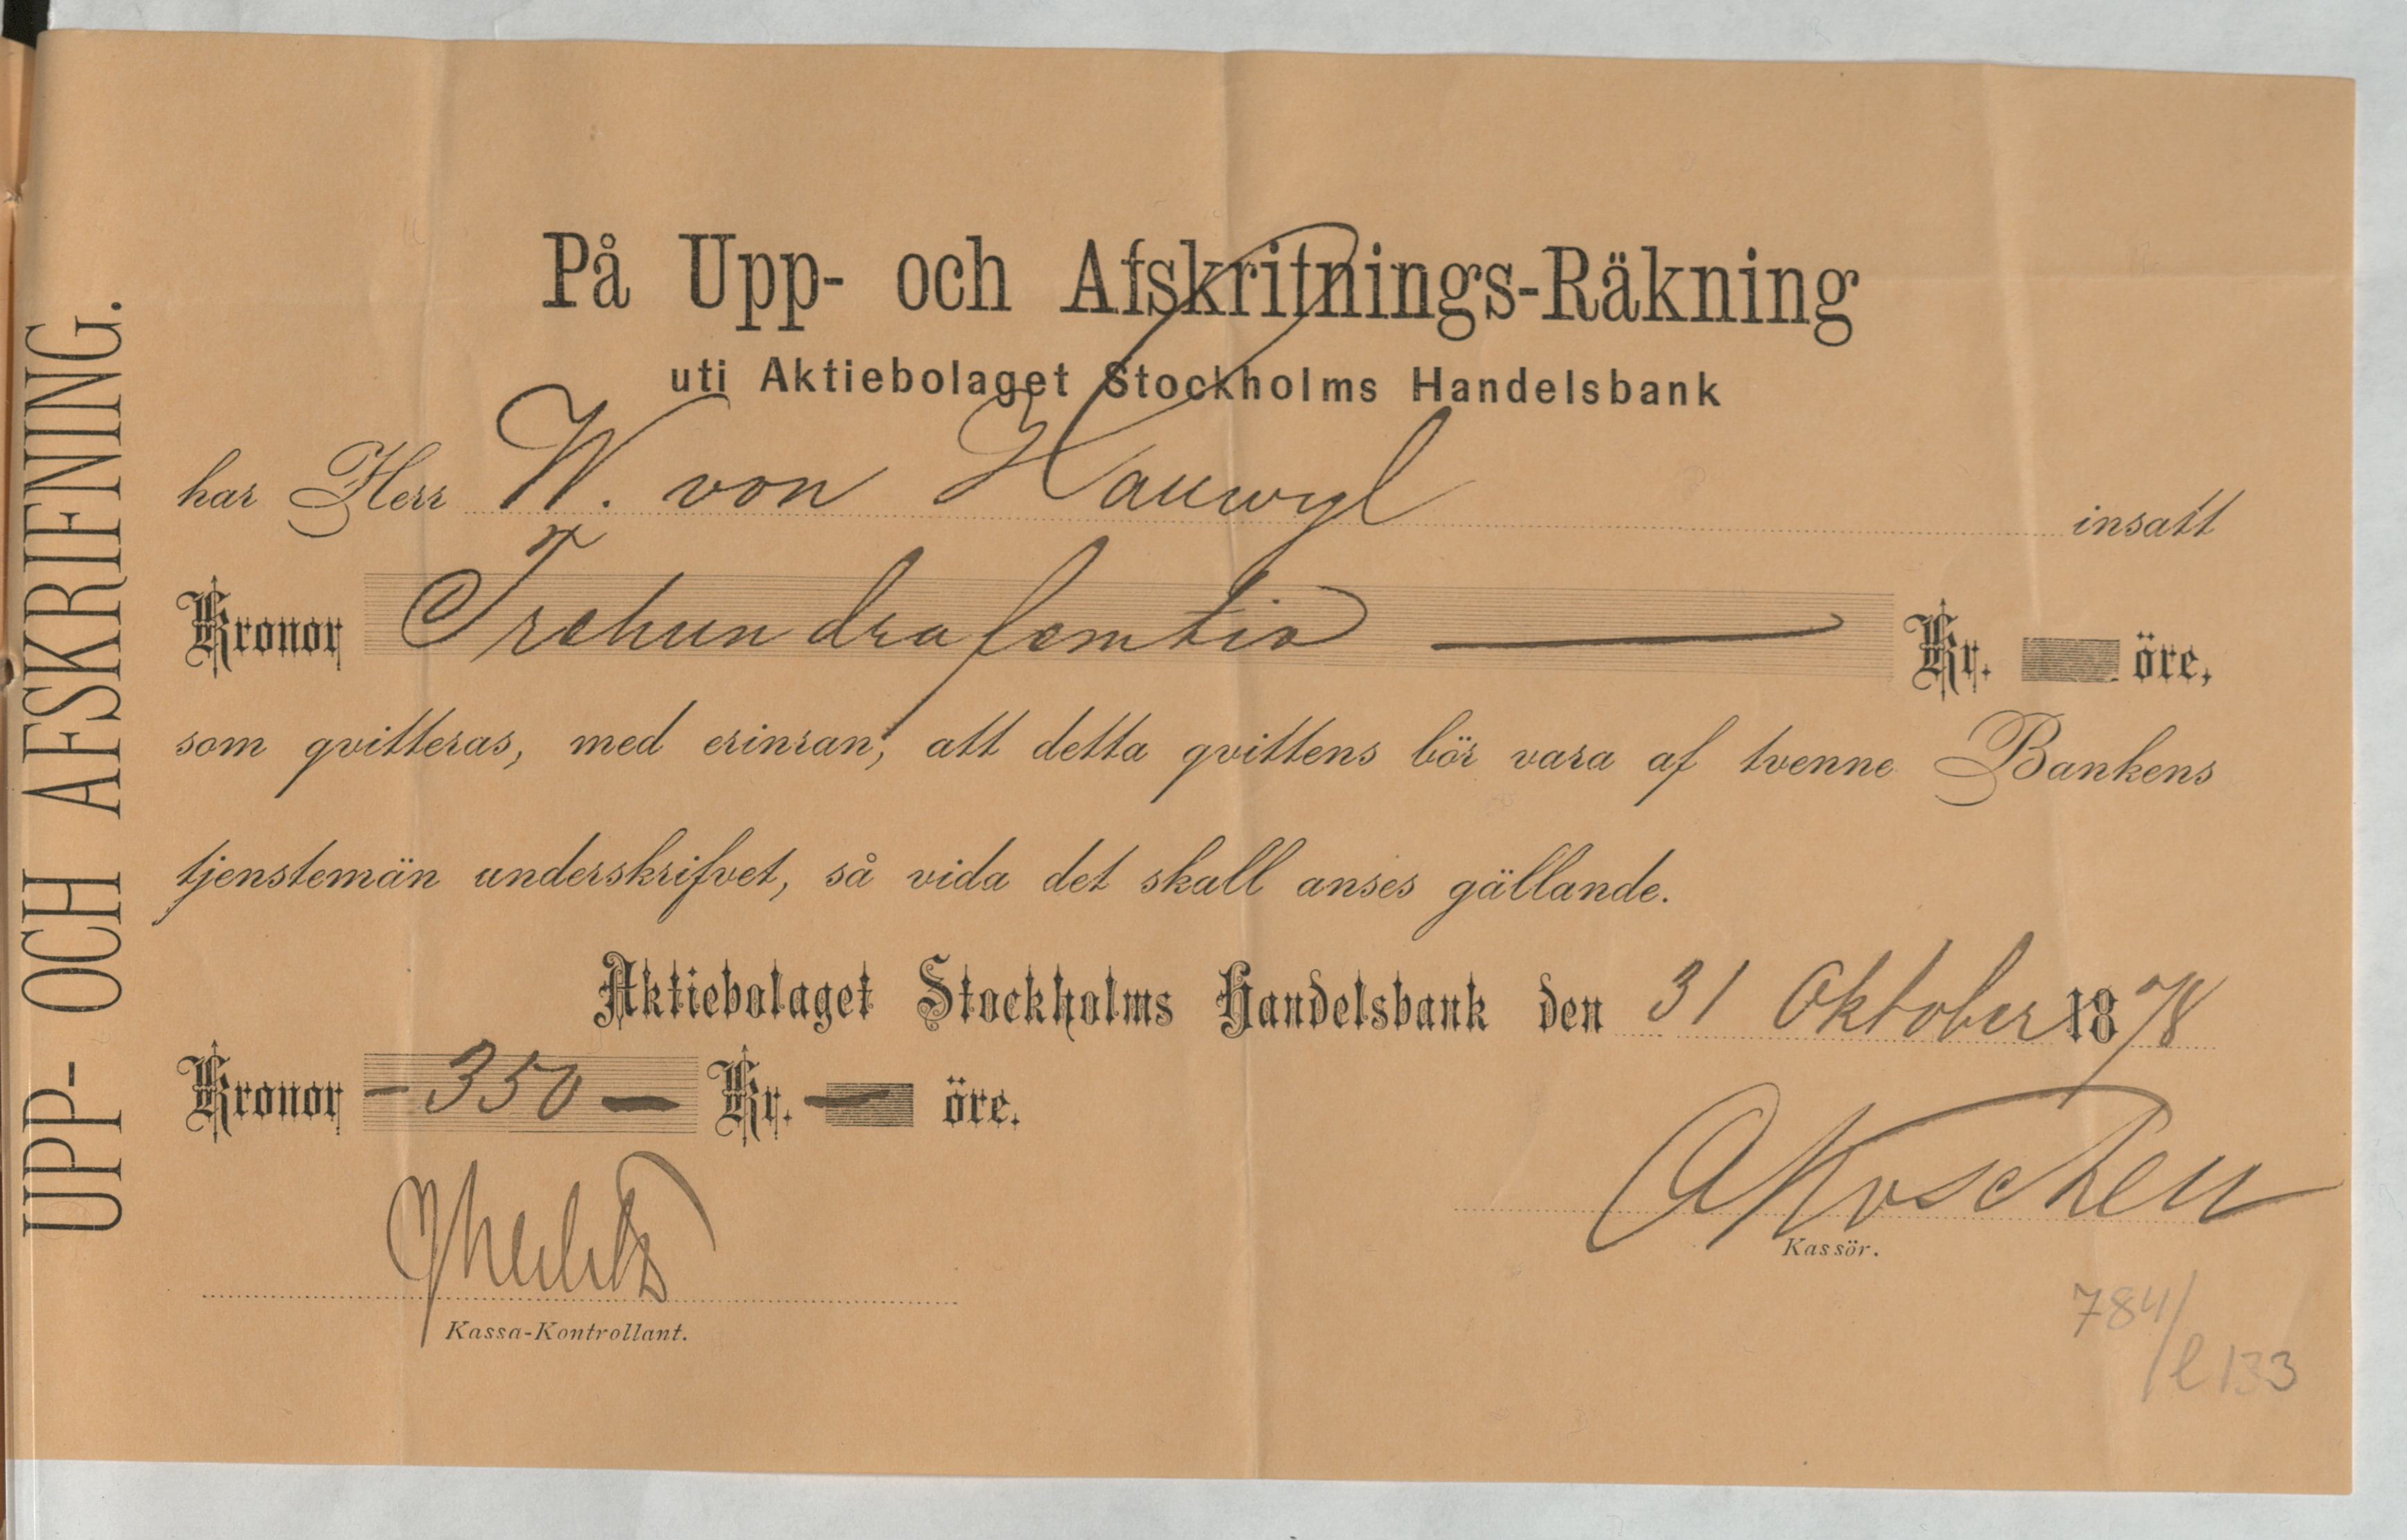 UPP- OCH AFSKRIFNING.
På Upp- och Afskrifnings-Räkning
uti Aktiebolaget Stockholms Handelsbank
har Herr W. von Hauwyl insatt
Kronor Trehundrafemtio — Kr. öre,
som qvitteras, med erinran, att detta qvittens bör vara af tvenne Bankens
tjenstemän underskrifvet, så vida det skall anses gällande.
Aktiebolaget Stockholms Handelsbank den 31 Oktober 1878
Kronor - 350 — Kr. — öre.
Kassör.
Kassa-Kontrollant.
784/
l 133